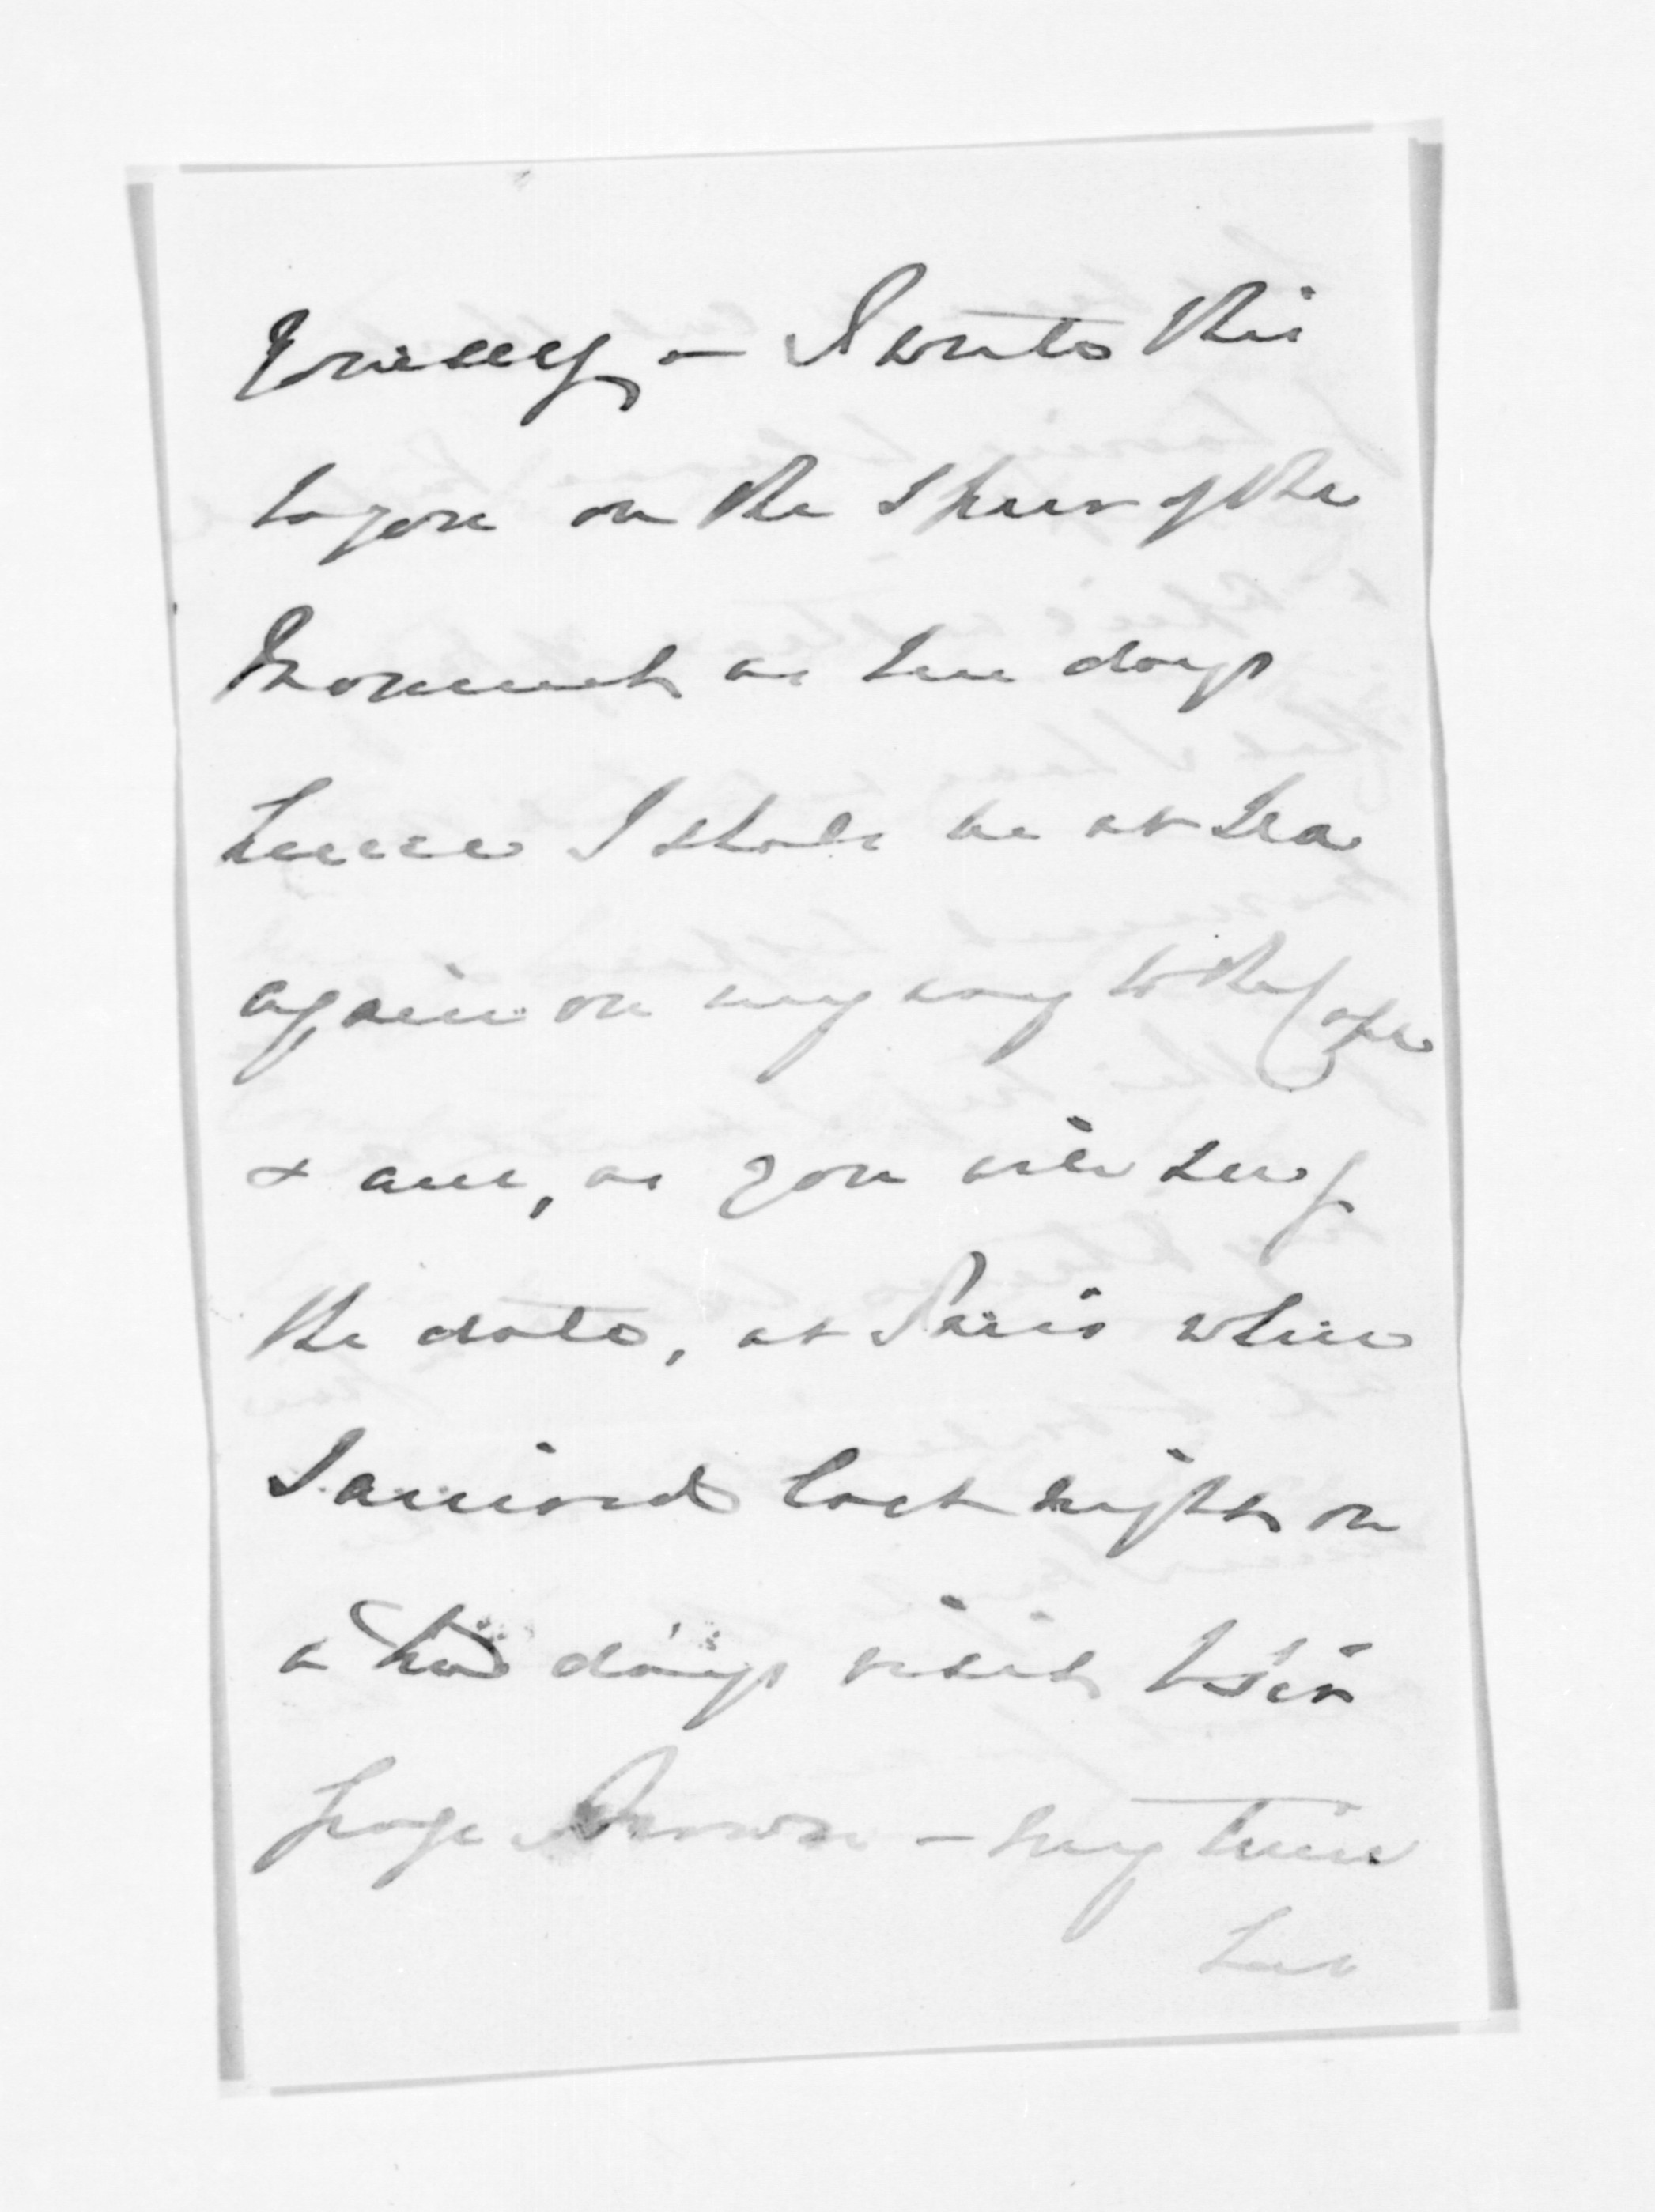 I write this
to you on the spur of the
Moment as ten days
hence I shall be at Sea
again on my way to the Cape
& am, as you will see by
the date, at Paris where
I arrived last night on
a two days visit to Sir
George Bowen - my time
has